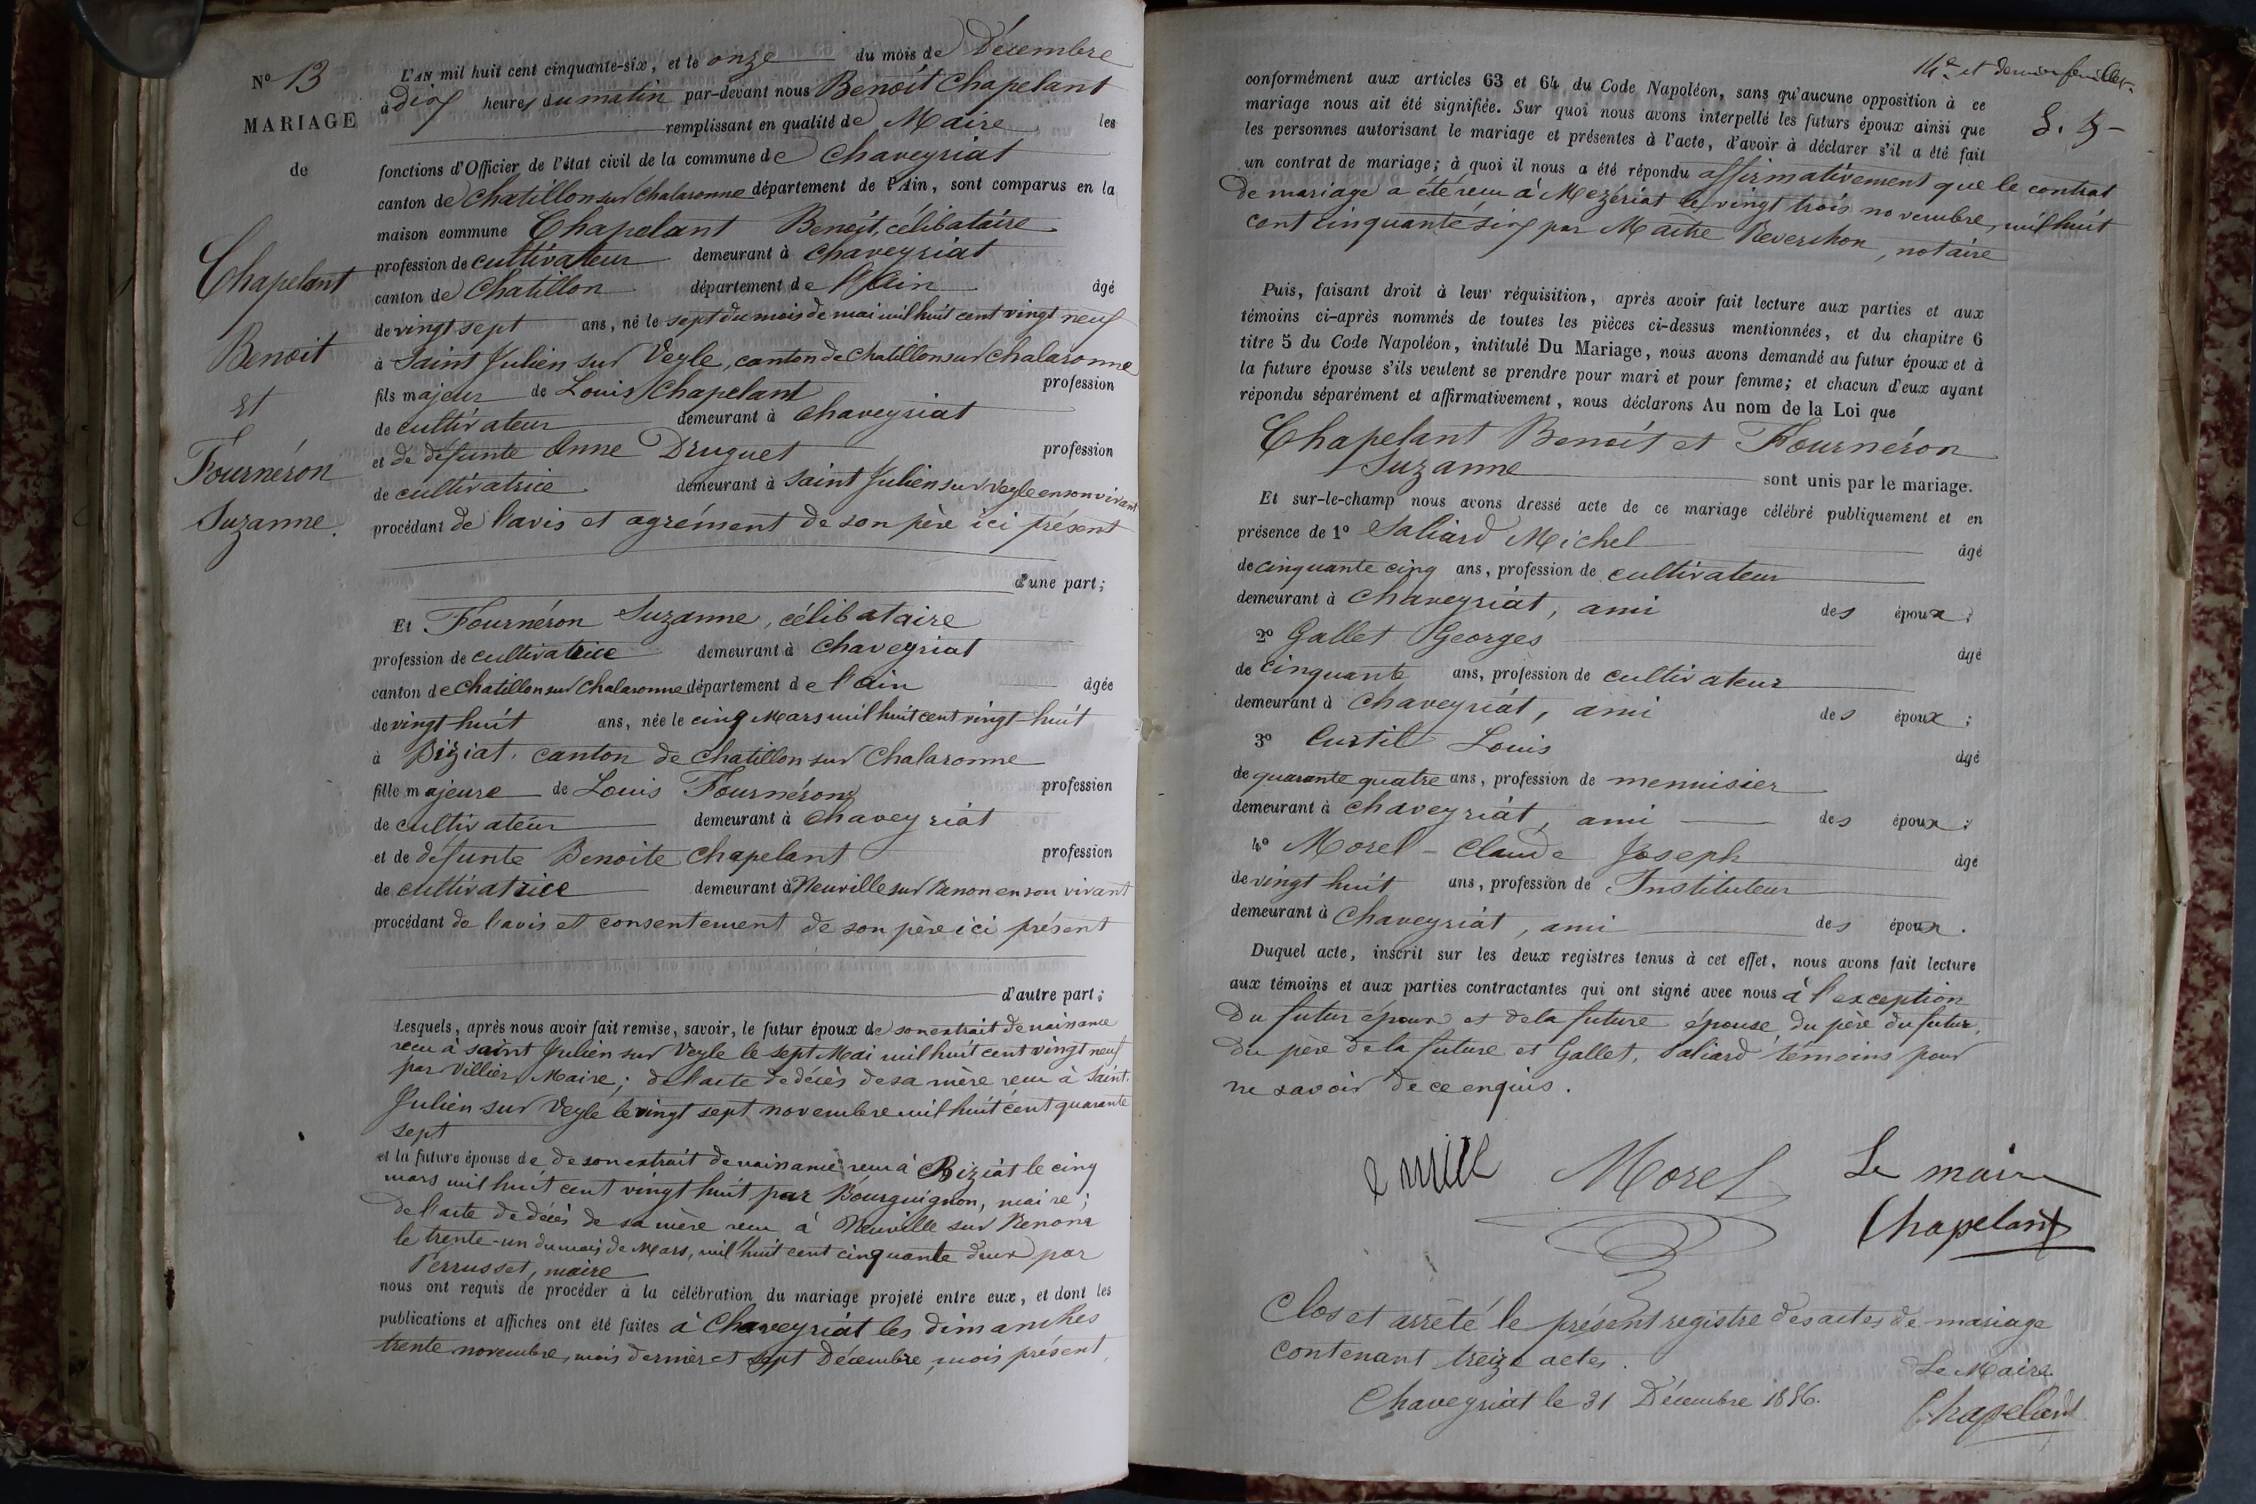 N° 13
MARIAGE
de
Chapelant
Benoit
et
Fournéron
Suzanne.
L'AN mil huit cent cinquante-six, et le onze du mois de Décembre
à dix heures du matin par-devant nous Benoît Chapelant
remplissant en qualité de Maire les
fonctions d'Officier de l'état civil de la commune de Chaveyriat
canton de Chatillon sur Chalaronne département de l'Ain, sont comparus en la
maison commune Chapelant Benoît, célibataire
profession de cultivateur demeurant à Chaveyriat
canton de Chatillon département de l'Ain âgé
de vingt sept ans, né le sept du mois de mai mil huit cent vingt neuf
à Saint Julien sur Veyle, canton de Chatillon sur Chalaronne
fils majeur de Louis Chapelant profession
de cultivateur demeurant à Chaveyriat
et de défunte Anne Druguet profession
de cultivatrice demeurant à Saint Julien sur Veyle en son vivant
procédant de l'avis et agrément de son père ici présent
d'une part;
Et Fournéron Suzanne, célibataire
profession de cultivatrice demeurant à Chaveyriat
canton de Chatillon sur Chalaronne département de l'Ain âgée
de vingt huit ans, née le cinq Mars mil huit cent vingt huit
à Biziat, canton de Chatillon sur Chalaronne
fille majeure de Louis Fournéron profession
de cultivateur demeurant à Chaveyriat
et de défunte Benoite Chapelant profession
de cultivatrice demeurant à Neuville sur Renon en son vivant
procédant de l'avis et consentement de son père ici présent
d'autre part;
Lesquels, après nous avoir fait remise, savoir, le futur époux de son extrait de naissance
reçu à Saint Julien sur Veyle le sept Mai mil huit cent vingt neuf
par Villier, Maire; de l'acte de décès de sa mère reçu à Saint
Julien sur Veyle le vingt sept novembre mil huit cent quarante
sept
et la future épouse de de son extrait de naissance reçu à Biziat le cinq
mars mil huit cent vingt huit par Bourguignon, maire;
de l'acte de décès de sa mère reçu à Neuville sur Renon
le trente-un du mois de Mars, mil huit cent cinquante deux par
Perrusset, maire
nous ont requis de procéder à la célébration du mariage projeté entre eux, et dont les
publications et affiches ont été faites à Chaveyriat les dimanches
trente novembre, mois dernier et sept Décembre, mois présent,
14e et dernier feuillet
conformément aux articles 63 et 64 du Code Napoléon, sans qu'aucune opposition à ce
mariage nous ait été signifiée. Sur quoi nous avons interpellé les futurs époux ainsi que
les personnes autorisant le mariage et présentes à l'acte, d'avoir à déclarer s'il a été fait
un contrat de mariage; à quoi il nous a été répondu affirmativement que le contrat
de mariage a été reçu à Mezériat le vingt trois novembre, mil huit
cent cinquante six par Maître Reverchon, notaire
Puis, faisant droit à leur réquisition, après avoir fait lecture aux parties et aux
témoins ci-après nommés de toutes les pièces ci-dessus mentionnées, et du chapitre 6
titre 5 du Code Napoléon, intitulé Du Mariage, nous avons demandé au futur époux et à
la future épouse s'ils veulent se prendre pour mari et pour femme; et chacun d'eux ayant
répondu séparément et affirmativement, nous déclarons Au nom de la Loi que
Chapelant Benoit et Fournéron
Suzanne sont unis par le mariage.
Et sur-le-champ nous avons dressé acte de ce mariage célébré publiquement et en
présence de 1° Saliard Michel âgé
de cinquante cinq ans, profession de cultivateur
demeurant à Chaveyriat, ami des époux;
2° Gallet Georges âgé
de cinquante ans, profession de cultivateur
demeurant à Chaveyriat, ami des époux;
3° Curtil Louis âgé
de quarante quatre ans, profession de menuisier
demeurant à Chaveyriat, ami des époux;
4° Morel - Claude Joseph âgé
de vingt huit ans, profession de Instituteur
demeurant à Chaveyriat, ami des époux.
Duquel acte, inscrit sur les deux registres tenus à cet effet, nous avons fait lecture
aux témoins et aux parties contractantes qui ont signé avec nous à l'exception
du futur époux et de la future épouse du père du futur,
du père de la future et Gallet, Saliard témoins pour
ne savoir de ce enquis.
Morel
Le maire
Chapelant
Clos et arrêté le présent registre des actes de mariage
contenant treize actes.
Le Maire
Chaveyriat le 31 Décembre 1856.
Chapelant